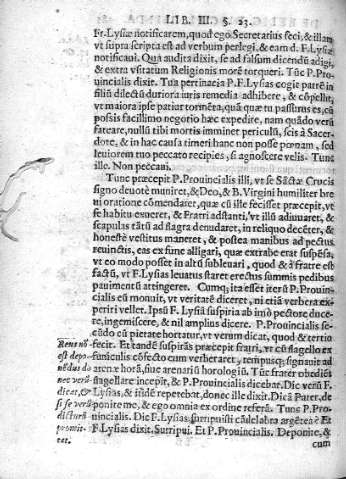 LIB. III. §. 23.
Fr. Lysiæ notificarem, quod ego Secretarius feci, & illam
vt supra scripta est ad verbum perlegi, & eam d. F. Lysiæ
notificaui. Qua audita dixit, se ad falsum dicendũ adigi,
& extra vsitatum Religionis morẽ torqueri. Tũc P. Pro-
uincialis dixit. Tua pertinacia P. F. Lysias cogit patrẽ in
filiũ dilectũ duriora iuris remedia adhibere, & cõpellit,
vt maiora ipse patiar tormẽta, quã quæ tu passurus es, cũ
possis facillimo negotio hæc expedire, nam quãdo verũ
fateare, nullũ tibi mortis imminet periculũ, scis à Sacer-
dote, & in hac causa timeri hanc non posse pœnam, sed
leuiorem tuo peccato recipies, si agnoscere velis. Tunc
ille. Non peccaui.
Tunc præcepit P. Prouincialis illi, vt se Sãctæ Crucis
signo deuotè muniret, & Deo, & B. Virgini humiliter bre
ui oratione cõmendaret, quæ cũ ille fecisset, præcepit, vt
se habitu exueret, & Fratri adstanti, vt illũ adiuuaret, &
scapulas tãtũ ad flagra denudaret, in reliquo decẽter, &
honestè vestitus maneret, & postea manibus ad pectus
reuinctis, eas ex fune alligari, quæ extrabe erat suspẽsa,
vt eo modo posset in altũ subleuari, quod & à fratre est
factũ, vt F. Lysias leuatus staret erectus summis pedibus
pauimentũ attingere. Cumq; ita esset iterũ P. Prouin-
cialis eũ monuit, vt veritatẽ diceret, ni etiã verbera ex-
periri vellet. Ipsũ F. Lysiã suspiria ab imò pectore duce-
re, ingemiscere, & nil amplius dicere. P. Prouincialis se-
cũdò cũ pietate hortatur, vt verum dicat, quod & tertio
Reus nõ fecit. Et tandẽ suspirãs præcepit fratri, vt cũ flagello ex
est depo- funiculis cõfecto eum verberaret, tempusq; signauit ad
nẽdus do arenæ horã, siue arenariũ horologiũ. Tũc frater obediẽs
nec verũ flagellare incepit, & P. Prouincialis dicebat. Dic verũ F.
dicat, & Lysias, & iidẽ repetebat, donec ille dixit. Dicã Pater, de
si se verũ ponite me, & ego omnia ex ordine referã. Tunc P. Pro-
dicturũ uincialis. Dic F. Lysias, surripuisti cãdelabra argẽtea? Et
promit- F. Lysias dixit. Surripui. Et P. Prouincialis. Deponite, &
tat.
cum